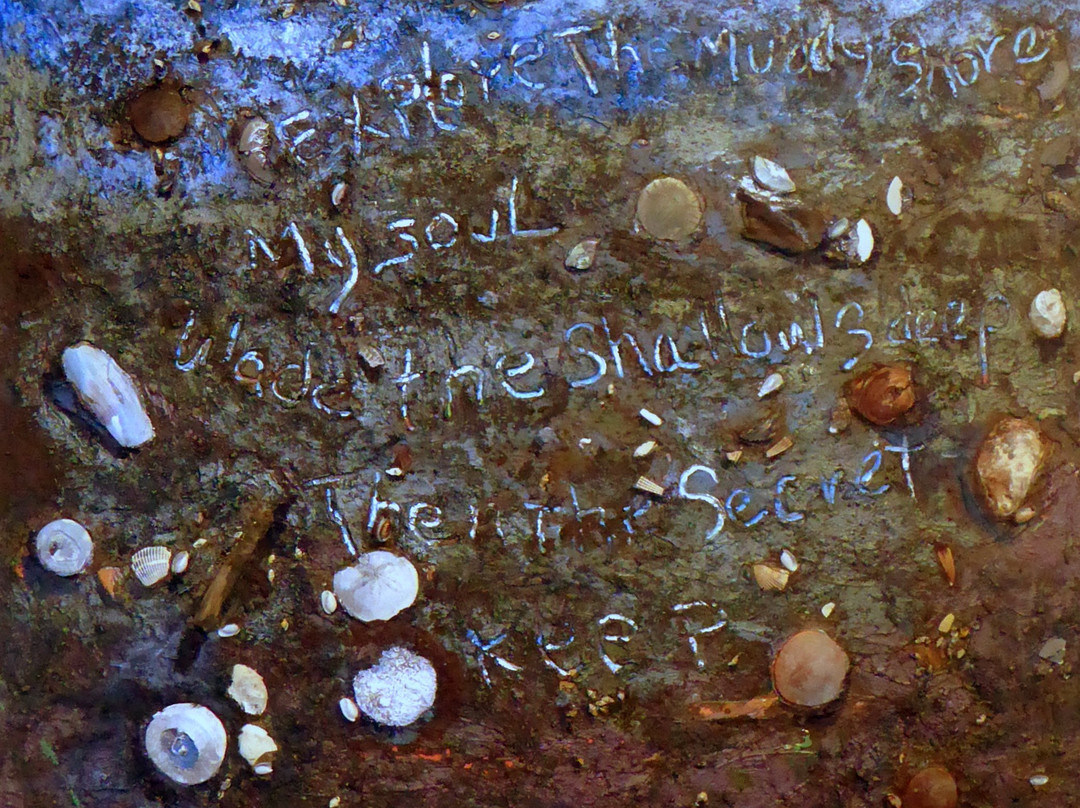 Explore The Muddy Shore
My soul
Wade the Shallows deep
Then the Secret
Keep